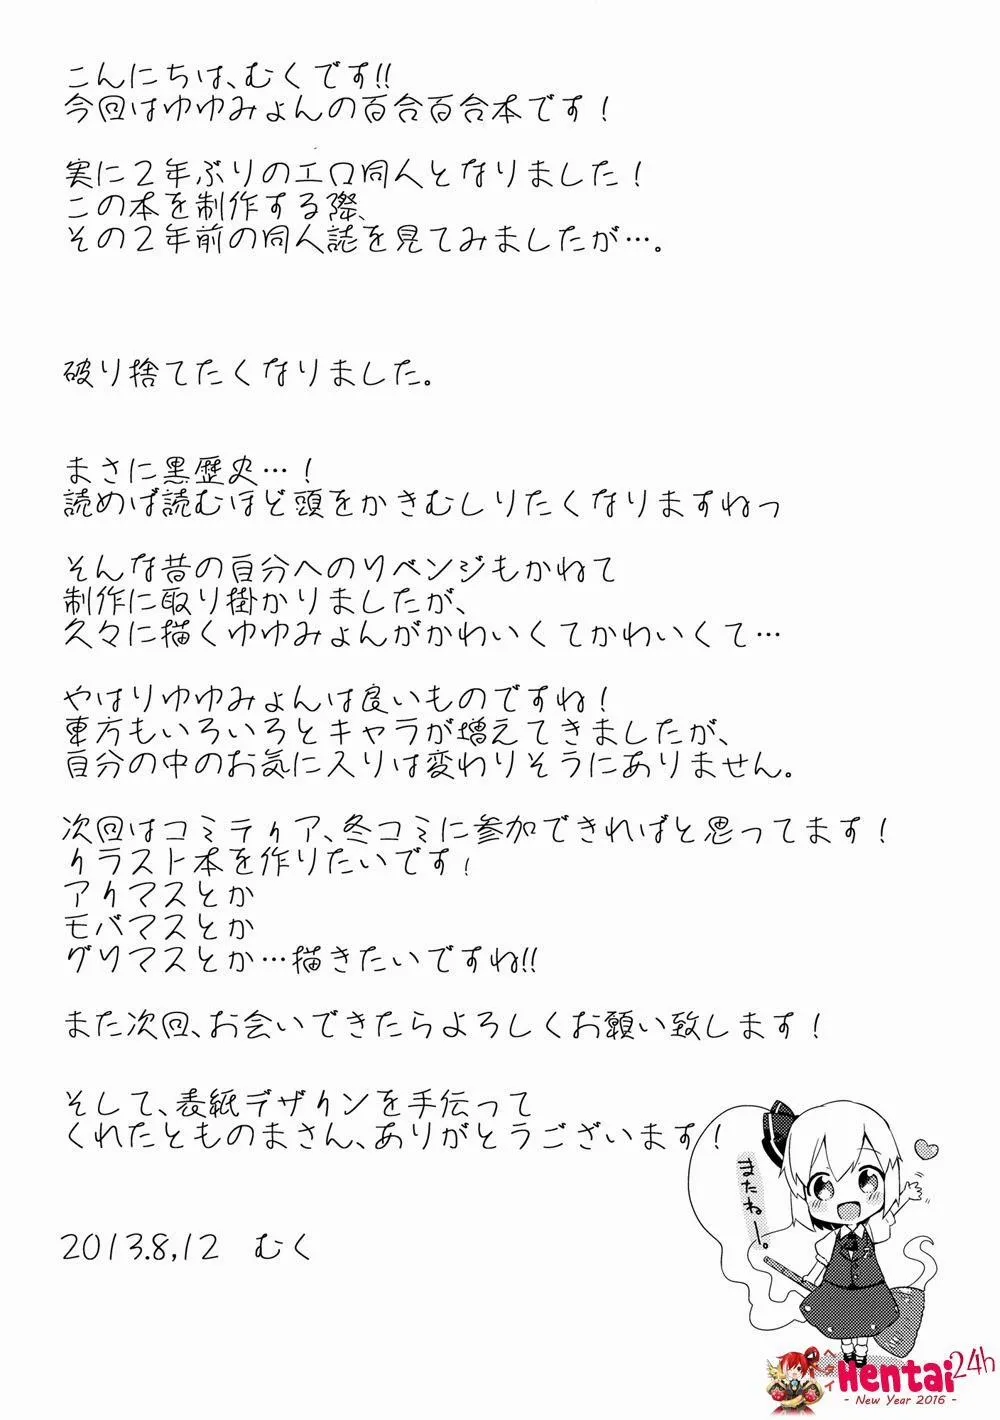 こんにちは、むくです!!
今回はゆゆみょんの百合百合本です！
実に２年ぶりのエロ同人となりました！
この本を制作する際、
その２年前の同人誌を見てみましたが…。
破り捨てたくなりました。
まさに黒歴史…！
読めば読むほど頭をかきむしりたくなりますねっ
そんな昔の自分へのリベンジもかねて
制作に取り掛かりましたが、
久々に描くゆゆみょんがかわいくてかわいくて…
やはりゆゆみょんは良いものですね！
東方もいろいろとキャラが増えてきましたが、
自分の中のお気に入りは変わりそうにありません。
次回はコミティア、冬コミに参加できればと思ってます！
イラスト本を作りたいです！
アイマスとか
モバマスとか
グリマスとか…描きたいですね!!
また次回、お会いできたらよろしくお願い致します！
そして、表紙デザインを手伝って
くれたとものまさん、ありがとうございます！
またねー。
2013.8,12　むく
ヘンタイ
Hentai 24h
- New Year 2016 -